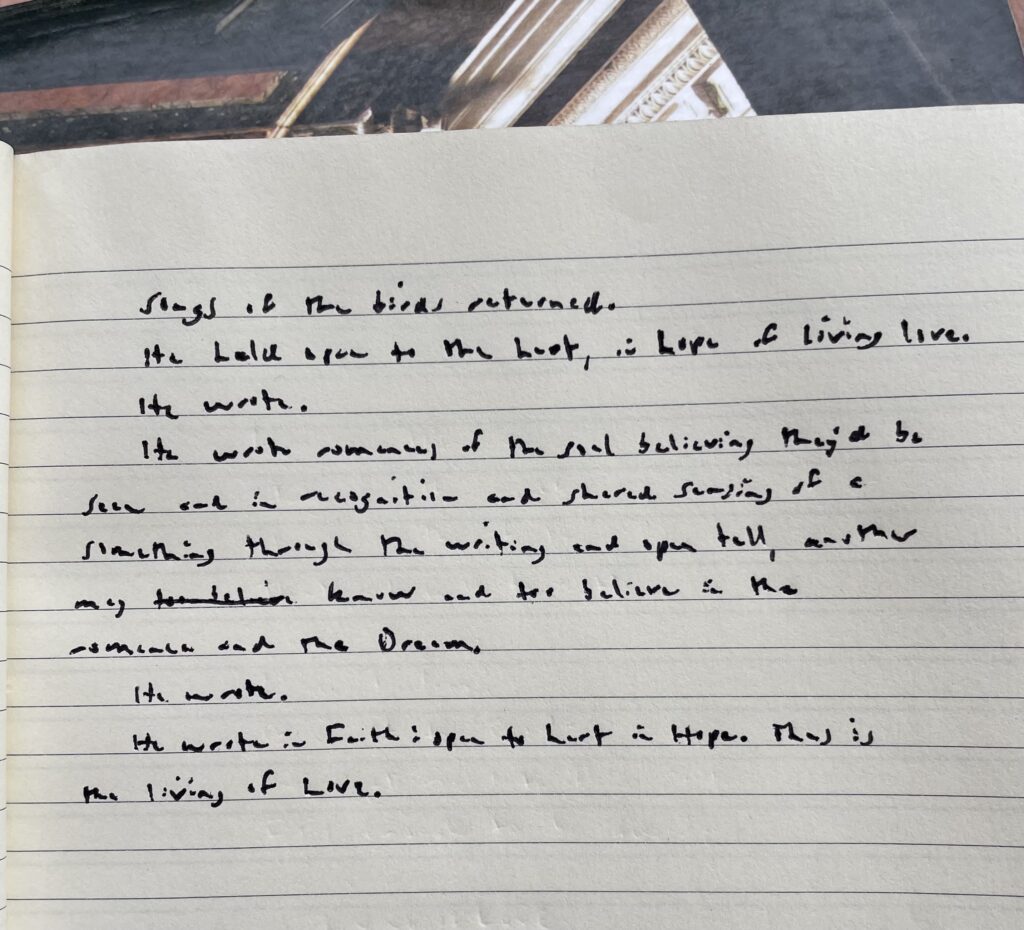 Songs of the birds returned.
He held open to the hurt, in hope of living love.
He wrote.
He wrote romances of the soul believing they'd be
seen and in recognition and shared sensing of a
something through the writing and open tell, another
may know and too believe in the
romance and the Dream.
He wrote.
He wrote in Faith : open to hurt in Hope. Thus is
the living of Love.